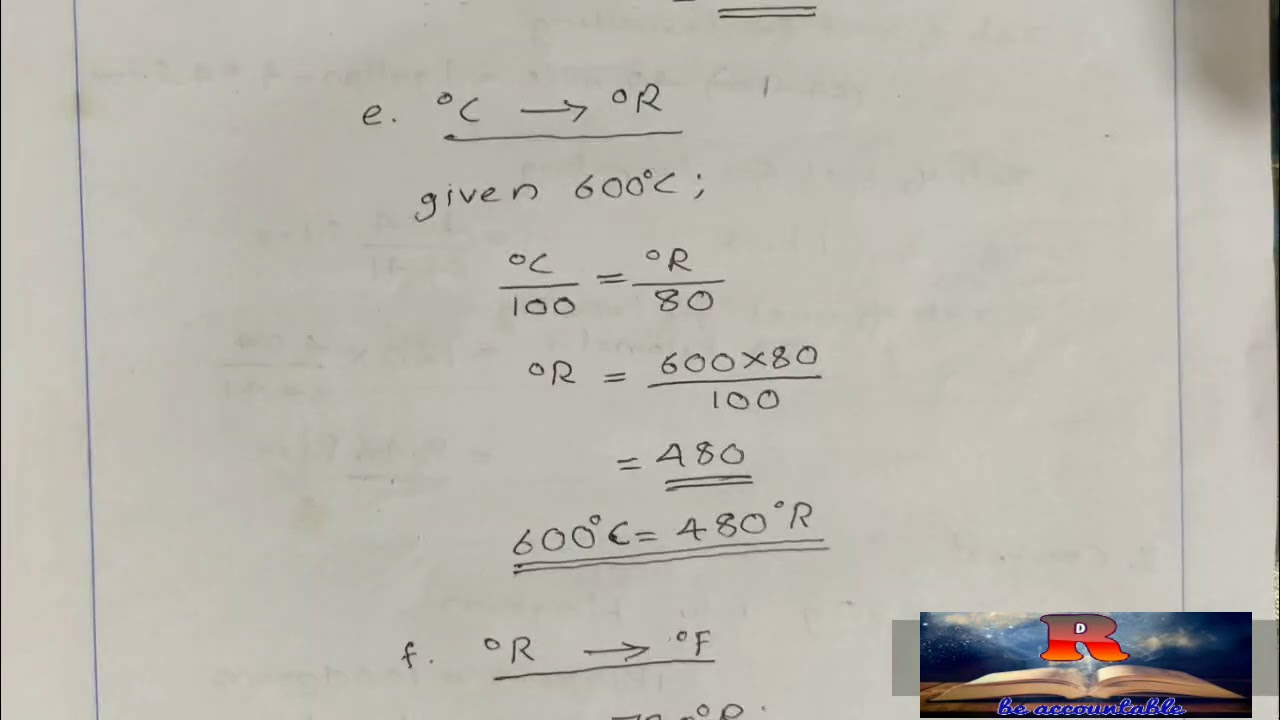 e. °C → °R
given 600°C;
°C/100 = °R/80
°R = 600×80/100
= 480
600°C = 480°R
f. °R → °F
°R.
R
D
be accountable